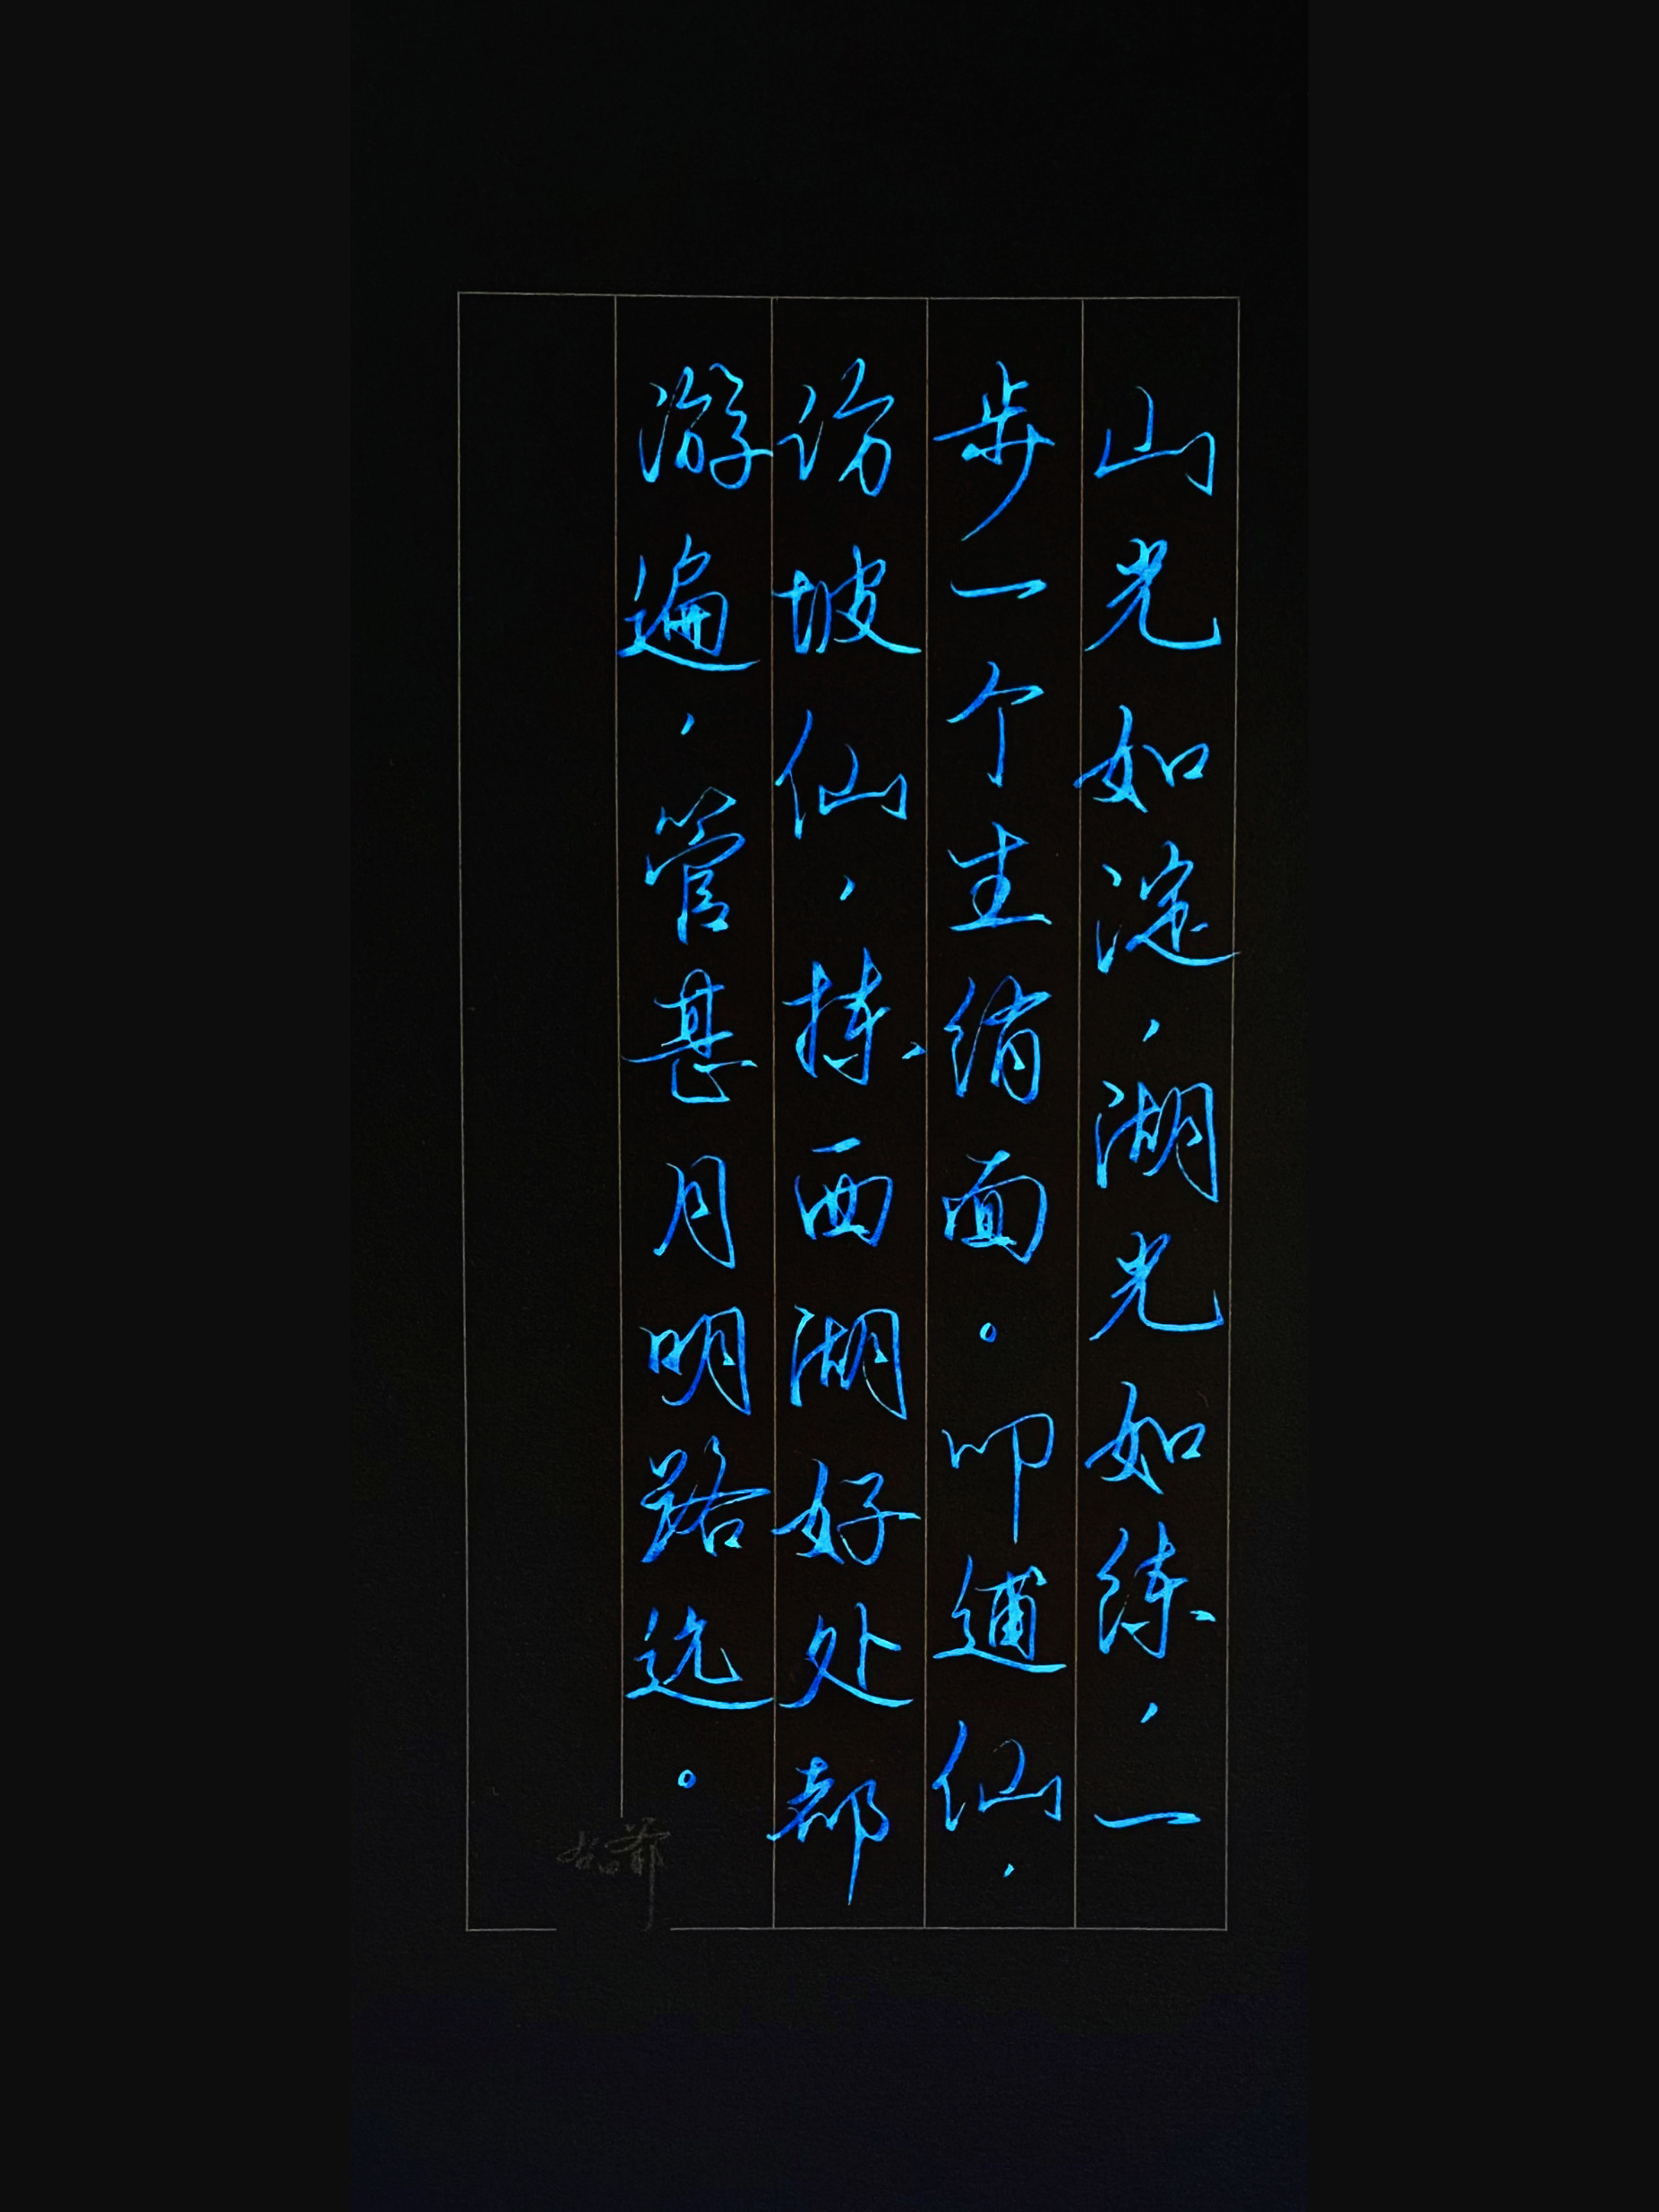 山光如淀，湖光如练，一
步一个生绡面。叩逋仙，
访坡仙，拣西湖好处都
游遍，管甚月明路远。